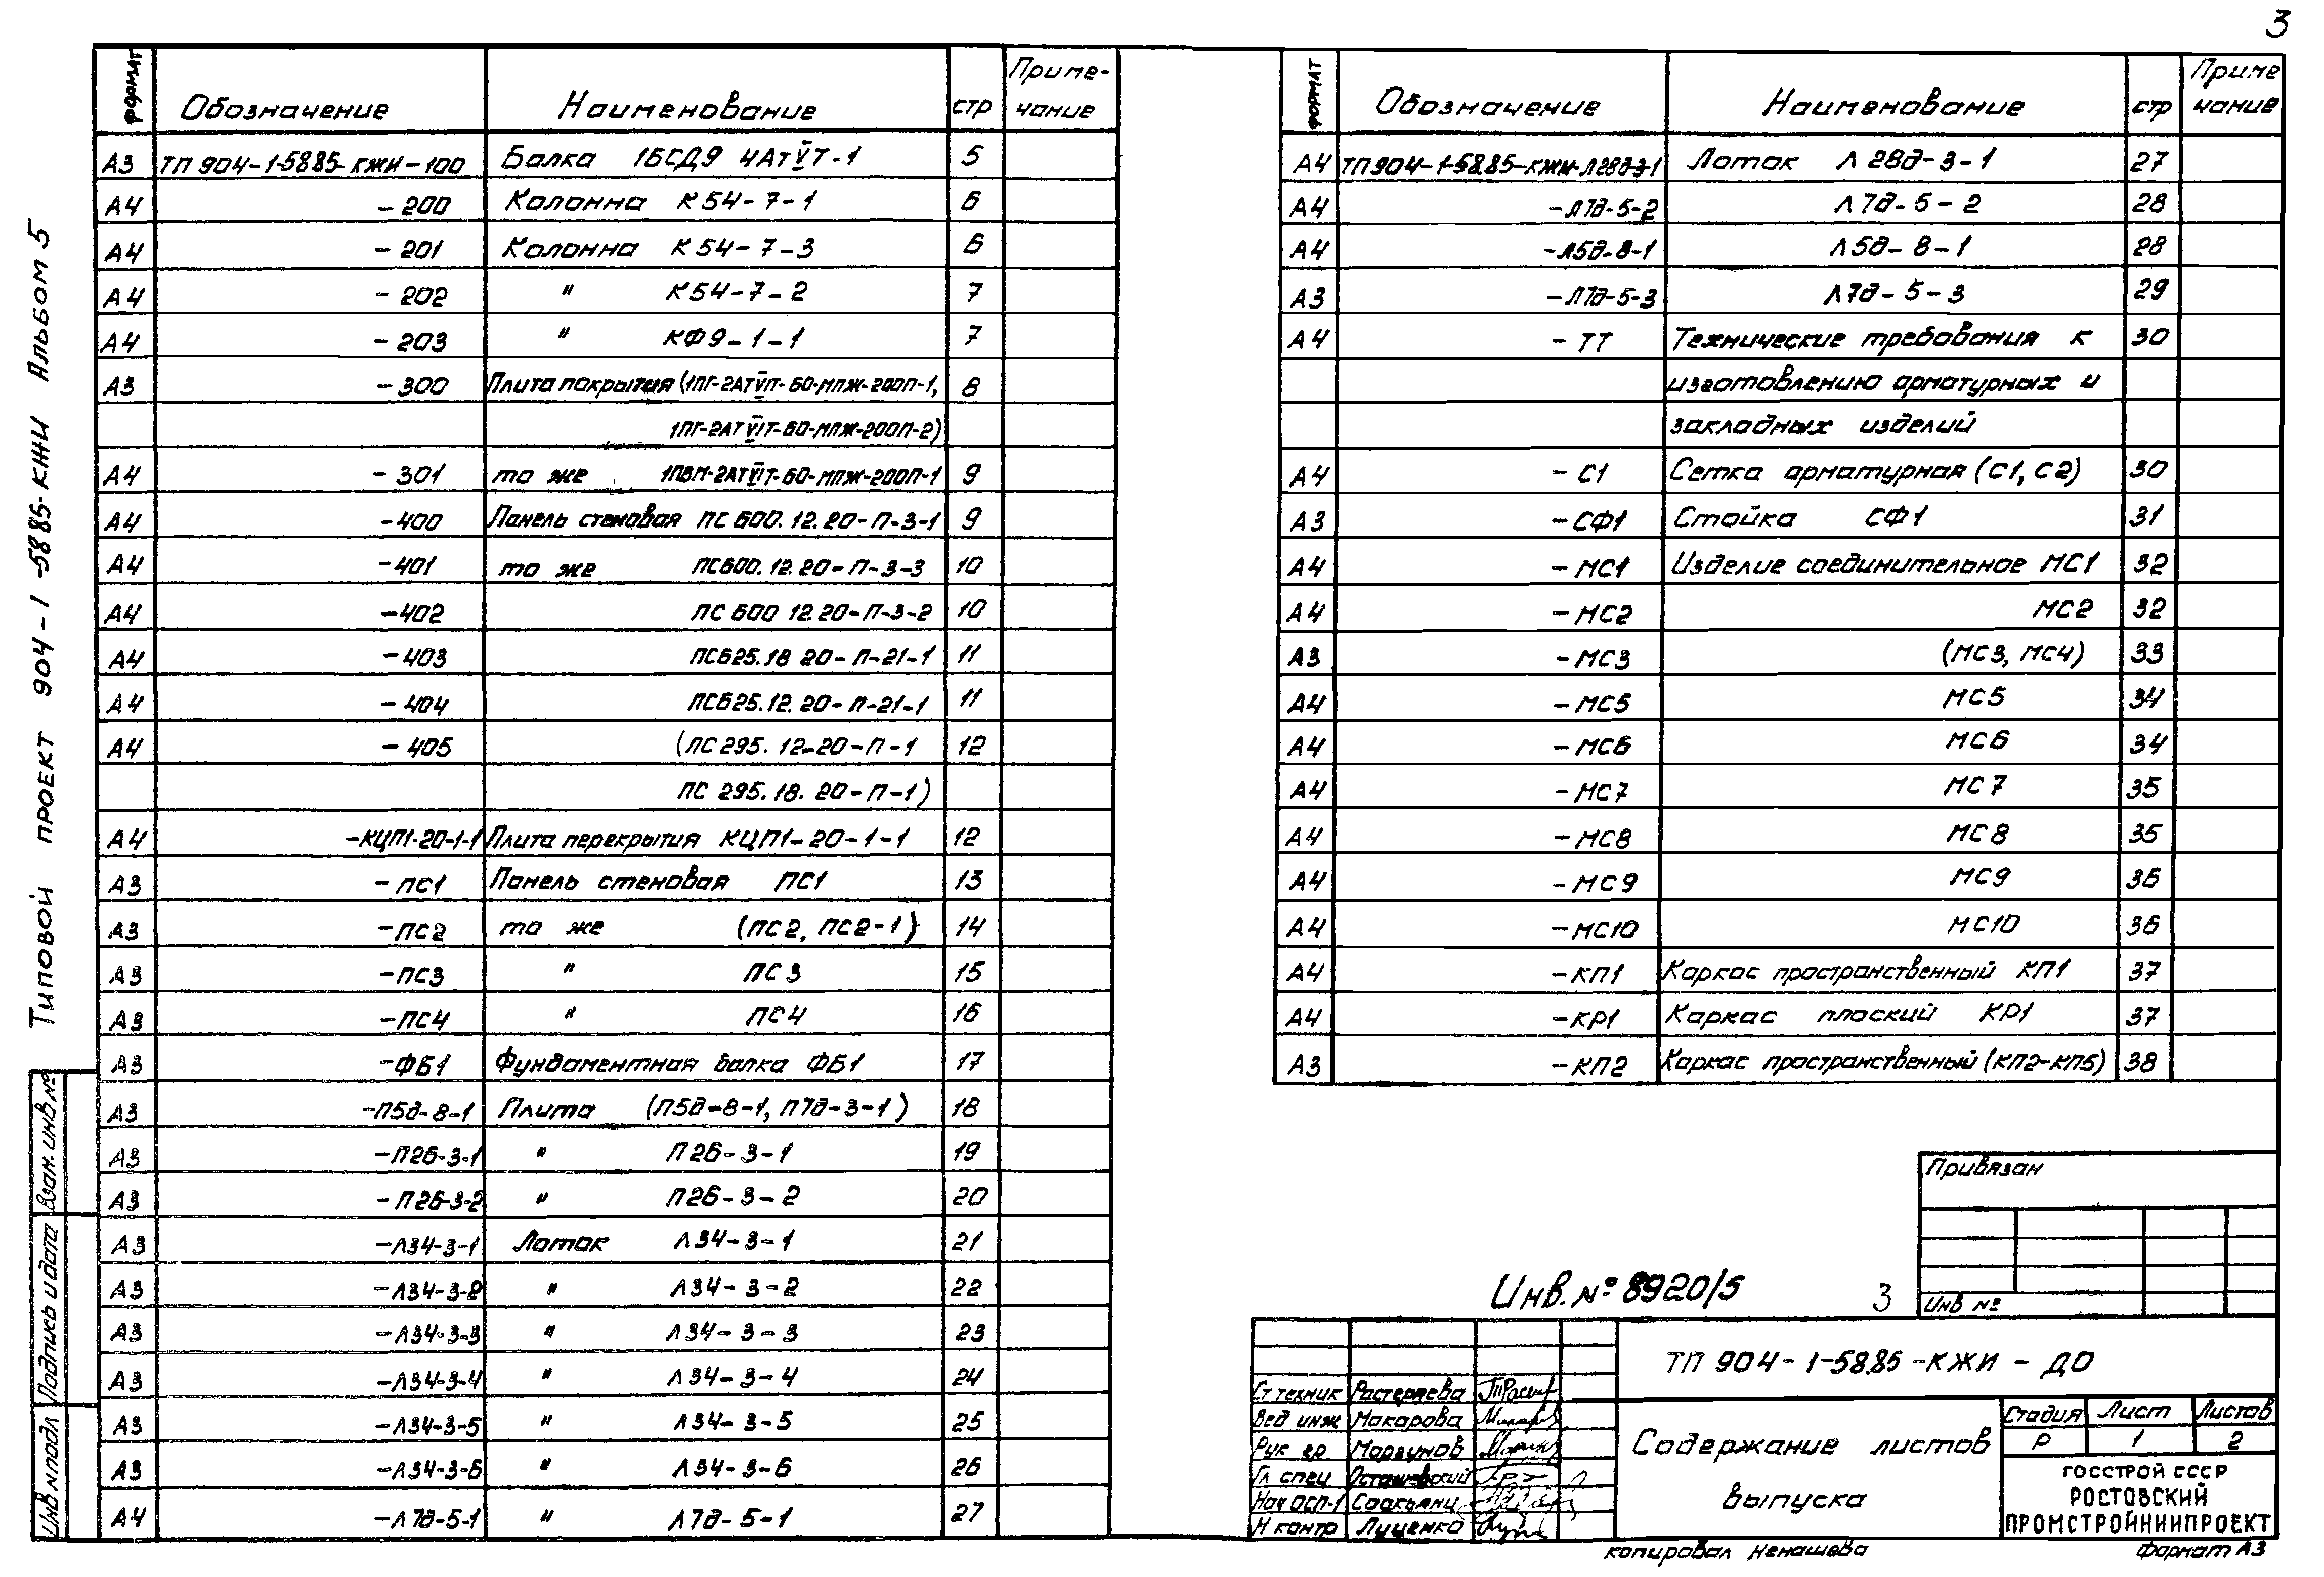 3
Типовой проект 904-1-58.85-КЖИ Альбом 5
Формат Обозначение Наименование стр Приме-
чание
А3 ТП 904-1-58.85-КЖИ-100 Балка 1БСД9 4АтVТ-1 5
А4 -200 Колонна К54-7-1 6
А4 -201 Колонна К54-7-3 6
А4 -202 " К54-7-2 7
А4 -203 " КФ9-1-1 7
А3 -300 Плита покрытия (1ПГ-2АтVIТ-60-МПЖ-200П-1, 8
1ПГ-2АтVIТ-60-МПЖ-200П-2)
А4 -301 то же 1ПВМ-2АтVIТ-60-МПЖ-200П-1 9
А4 -400 Панель стеновая ПС 600.12.20-П-3-1 9
А4 -401 то же ПС600.12.20-П-3-3 10
А4 -402 ПС 600 12.20-П-3-2 10
А4 -403 ПС625.18 20-П-21-1 11
А4 -404 ПС625.12.20-П-21-1 11
А4 -405 (ПС295.12-20-П-1 12
ПС 295.18.20-П-1)
А4 -КЦП1-20-1-1 Плита перекрытия КЦП1-20-1-1 12
А3 -ПС1 Панель стеновая ПС1 13
А3 -ПС2 то же (ПС2, ПС2-1) 14
А3 -ПС3 " ПС3 15
А3 -ПС4 " ПС4 16
А3 -ФБ1 Фундаментная балка ФБ1 17
А3 -П5д-8-1 Плита (П5д-8-1, П7д-3-1) 18
А3 -П26-3-1 " П26-3-1 19
А3 -П26-3-2 " П26-3-2 20
А3 -Л34-3-1 Лоток Л34-3-1 21
А3 -Л34-3-2 " Л34-3-2 22
А3 -Л34-3-3 " Л34-3-3 23
А3 -Л34-3-4 " Л34-3-4 24
А3 -Л34-3-5 " Л34-3-5 25
А3 -Л34-3-6 " Л34-3-6 26
А4 -Л7д-5-1 " Л7д-5-1 27
Формат Обозначение Наименование стр Приме
чание
А4 ТП904-1-58.85-КЖИ-Л28д-3-1 Лоток Л28д-3-1 27
А4 -Л7д-5-2 Л7д-5-2 28
А4 -Л5д-8-1 Л5д-8-1 28
А3 -Л7д-5-3 Л7д-5-3 29
А4 -ТТ Технические требования к 30
изготовлению арматурных и
закладных изделий
А4 -С1 Сетка арматурная (С1, С2) 30
А3 -СФ1 Стойка СФ1 31
А4 -МС1 Изделие соединительное МС1 32
А4 -МС2 МС2 32
А3 -МС3 (МС3, МС4) 33
А4 -МС5 МС5 34
А4 -МС6 МС6 34
А4 -МС7 МС7 35
А4 -МС8 МС8 35
А4 -МС9 МС9 36
А4 -МС10 МС10 36
А4 -КП1 Каркас пространственный КП1 37
А4 -КР1 Каркас плоский КР1 37
А3 -КП2 Каркас пространственный (КП2-КП5) 38
Взам. инв №
Подпись и дата
Инв № подл
Привязан
Инв №
Инв. № 8920/5 3
ТП 904-1-58.85-КЖИ-ДО
Ст техник Растеряева
Вед инж Макарова
Рук гр Моргунов
Гл спец Осташевский
Нач ОСП-1 Саакьянц
Н контр Луценко
Содержание листов
выпуска
Стадия Лист Листов
Р 1 2
ГОССТРОЙ СССР
РОСТОВСКИЙ
ПРОМСТРОЙНИИПРОЕКТ
копировал Ненашева Формат А3